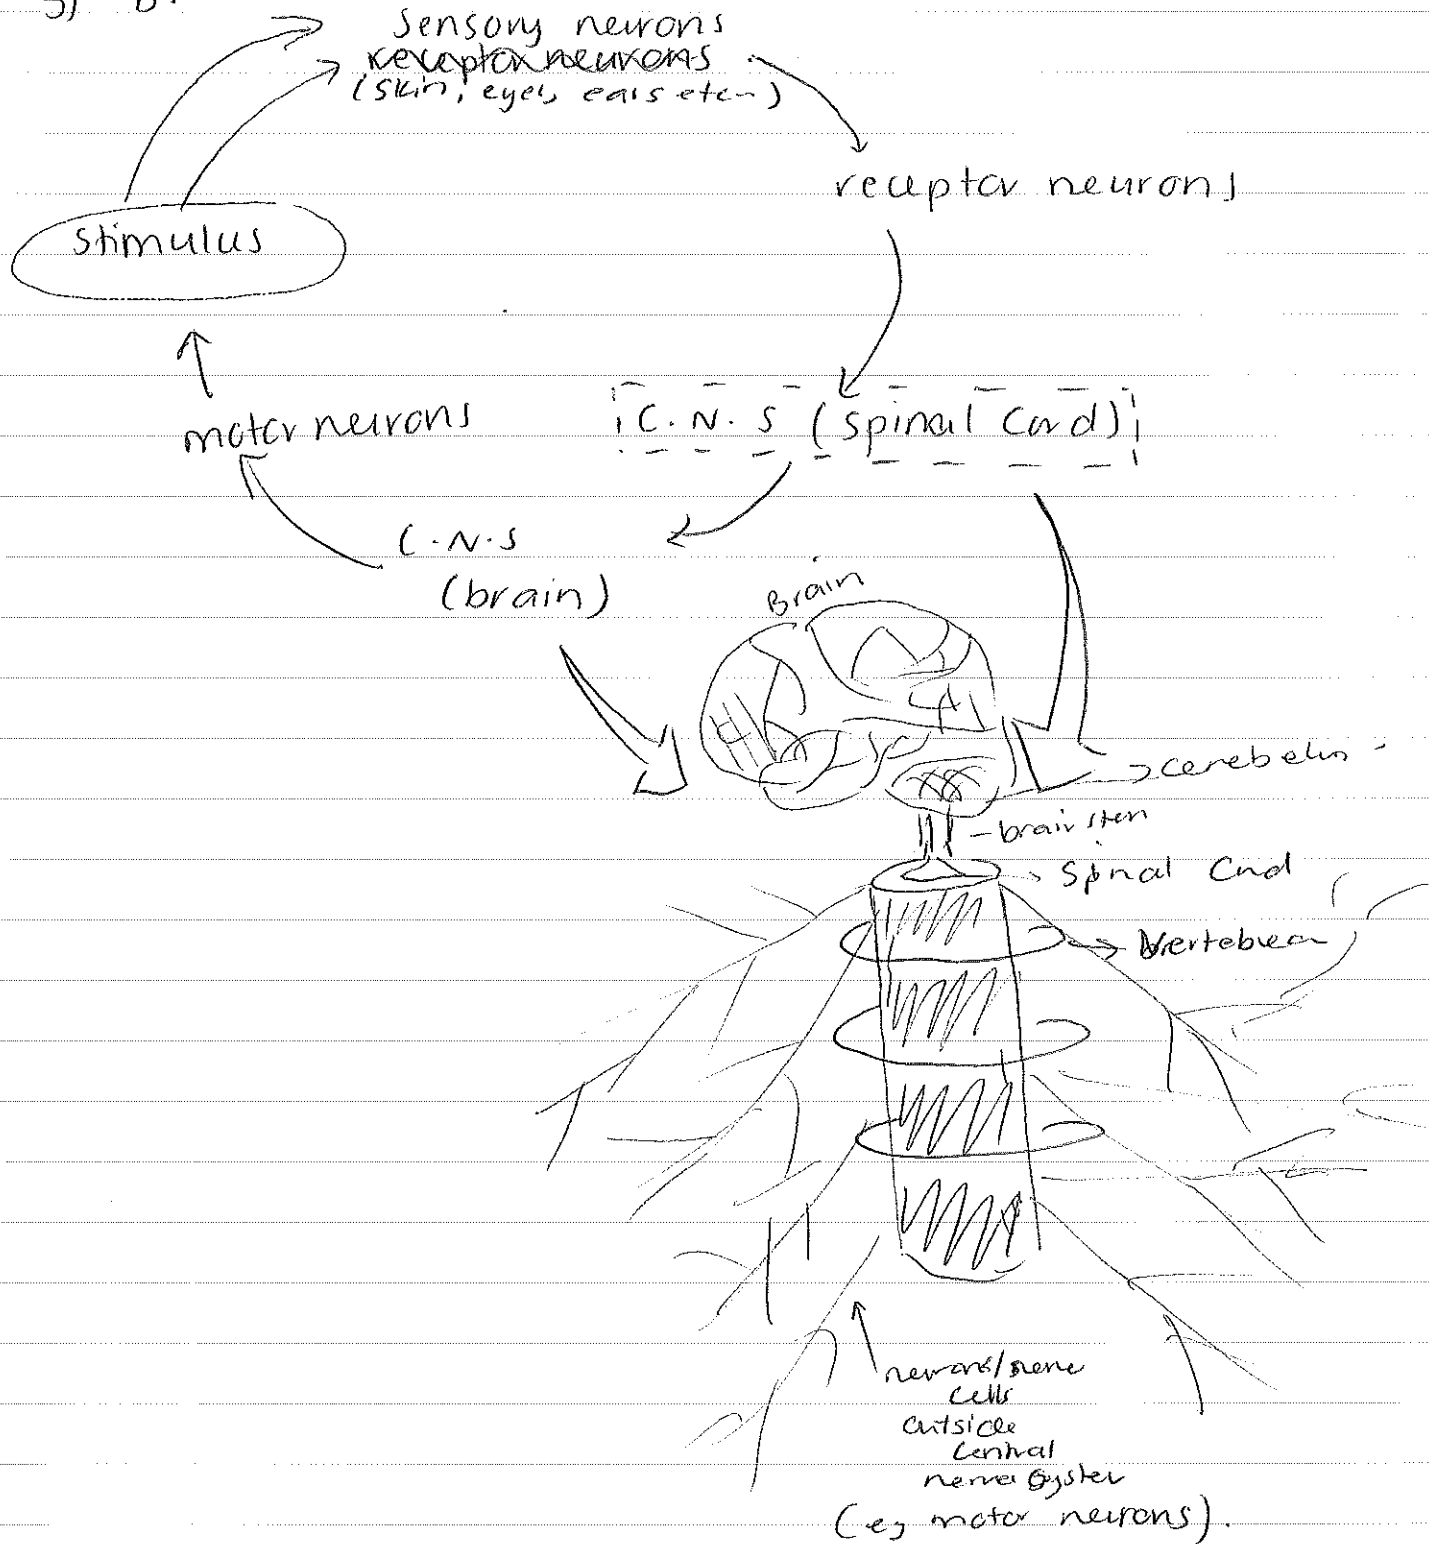 5) b.
Sensory neurons
receptor neurons
(skin, eyes, ears etc)
receptor neurons
stimulus
motor neurons
C.N.S (spinal cord)
C.N.S
(brain)
Brain
brain stem
Spinal Cord
neurons/nerve
cells
outside
central
(eg motor neurons).